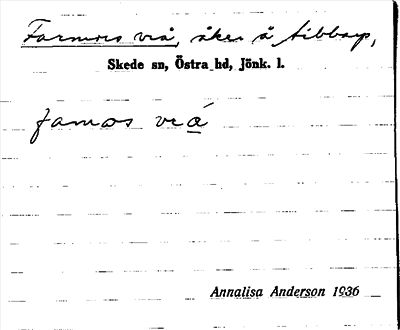 Farmors vrå, åker å Ribbarp,
Skede sn, Östra hd, Jönk. l.
famos vrá
Annalisa Anderson 1936